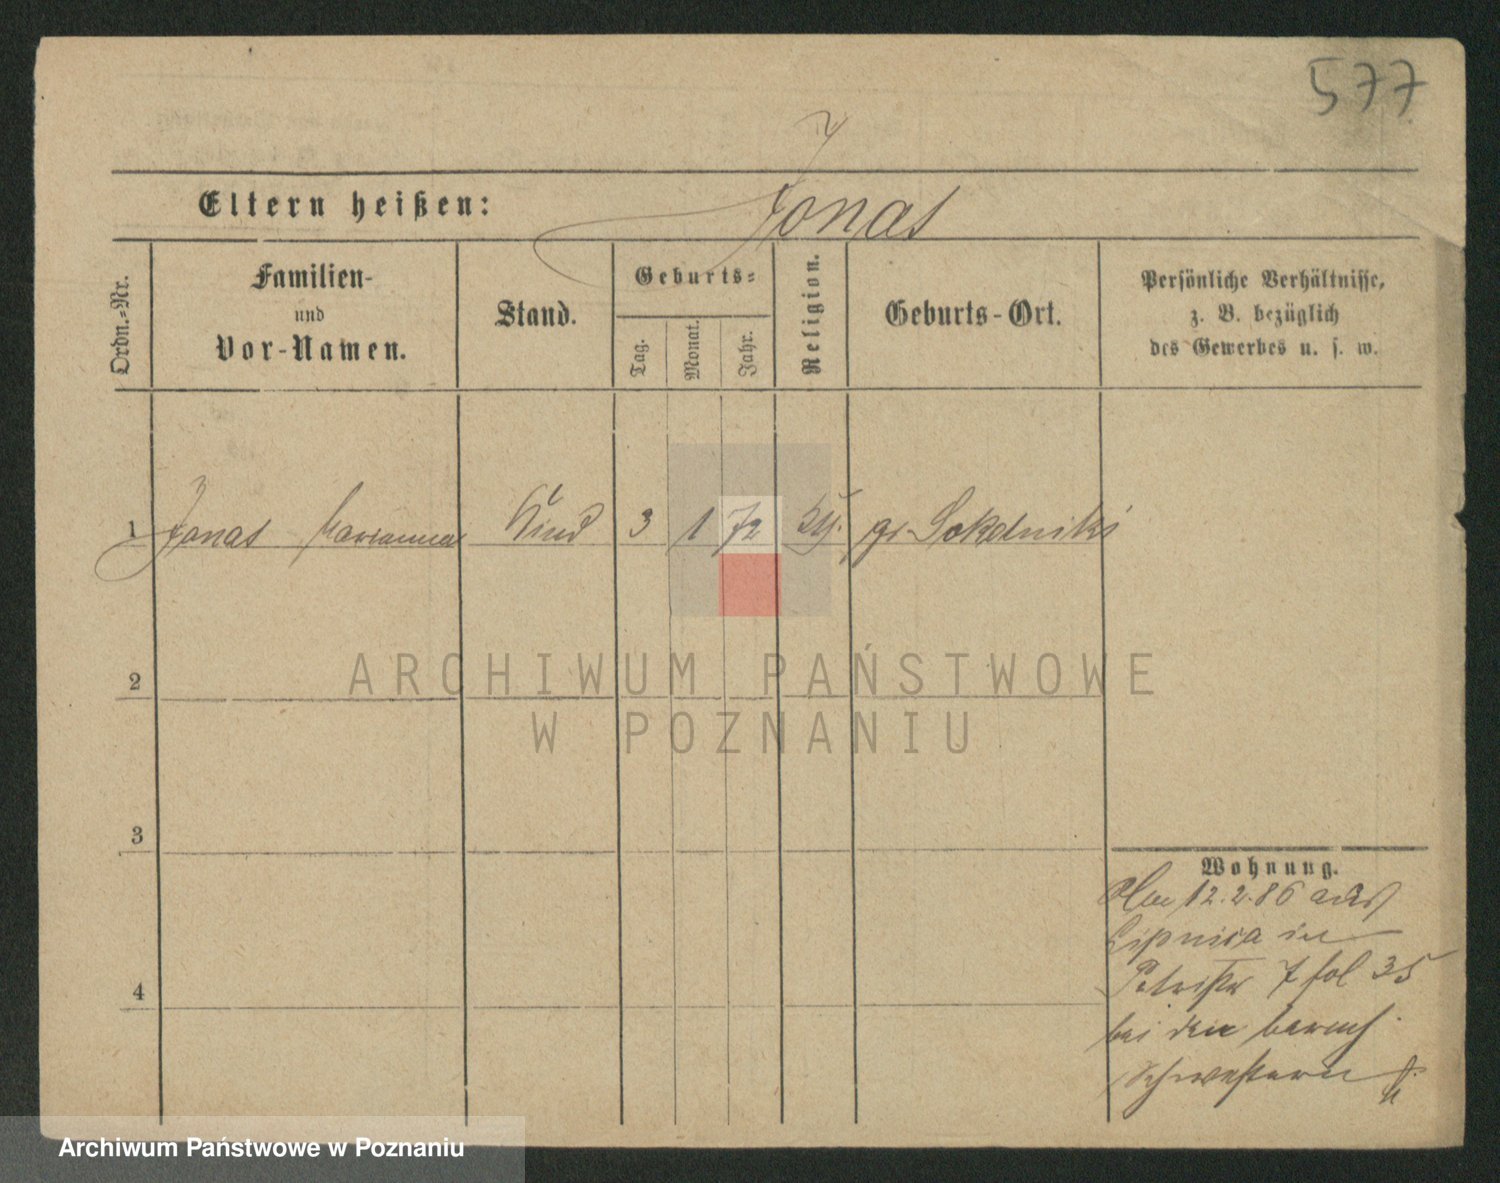 577
Eltern heißen: Jonas
Ordn.=Nr.
Familien-
und
Vor-Namen.
Stand.
Geburts=
Tag.
Monat.
Jahr.
Religion.
Geburts-Ort.
Persönliche Verhältnisse,
z. B. bezüglich
des Gewerbes u. s. w.
1 Jonas Marianna Kind 3 1 72 gr Sokolniki
2
3
4
Wohnung.
12.2.86 aus
Lipnica in
7 fol 35
bei den barmh.
Schwestern
ARCHIWUM PAŃSTWOWE
W POZNANIU
Archiwum Państwowe w Poznaniu